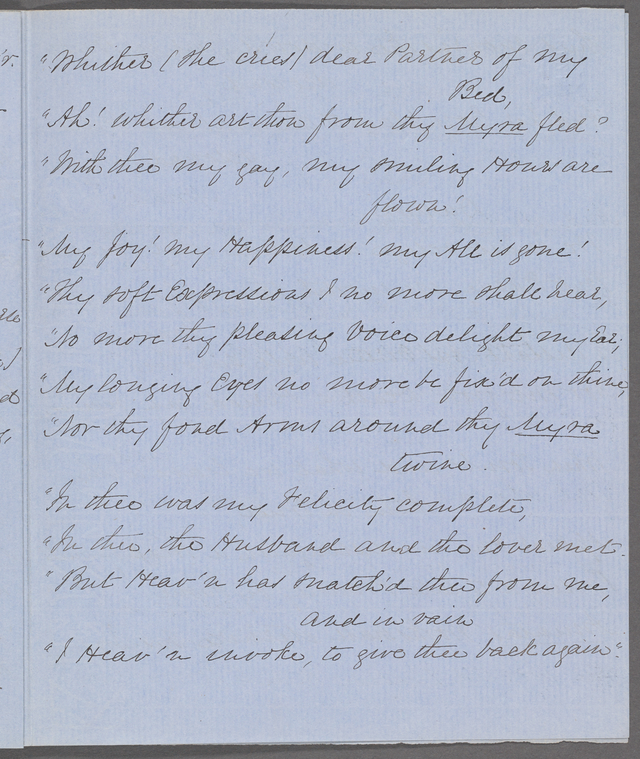 "Whither (she cries) dear Partner of my
Bed,
"Ah! whither art thou from thy Myra fled?
"With thee my gay, my smiling Hours are
flown!
"My Joy! my Happiness! my All is gone!
"Thy soft Expressions I no more shall hear,
"No more thy pleasing Voice delight my Ear;
"My longing Eyes no more be fix'd on thine,
"Nor thy fond Arms around thy Myra
twine.
"In thee was my Felicity complete,
"In thee, the Husband and the lover met.
"But Heav'n has snatch'd thee from me,
and in vain
"I Heav'n invoke, to give thee back again".